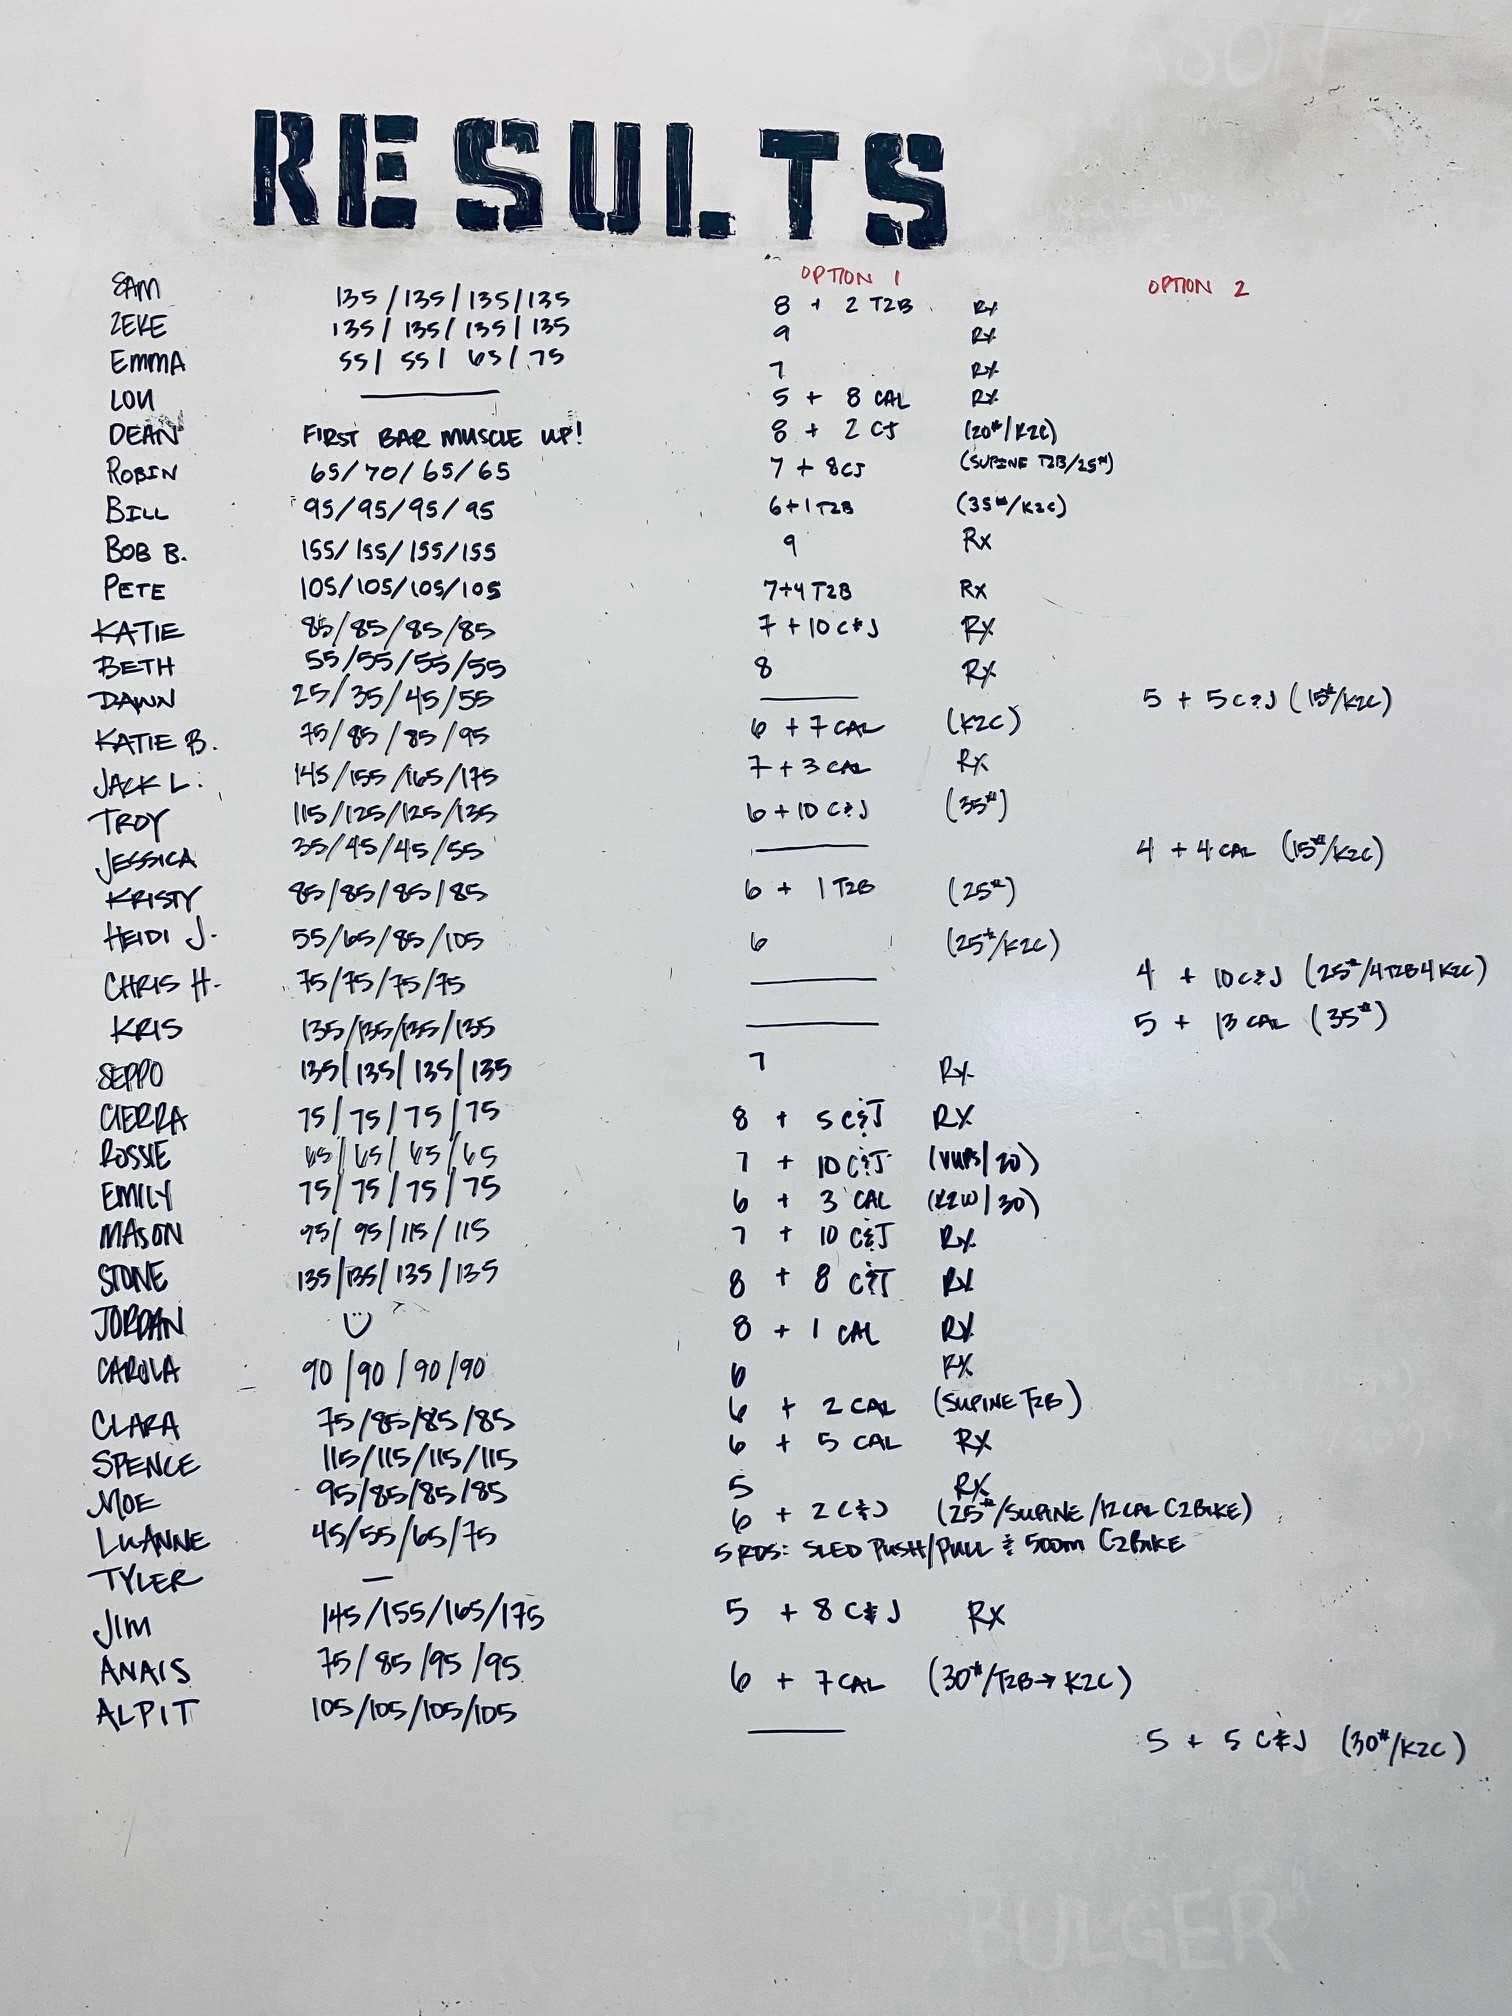 RESULTS
OPTION 1 OPTION 2
SAM 135/135/135/135 8 + 2 T2B Rx
ZEKE 135/135/135/135 9 Rx
EMMA 55/55/65/75 7 Rx
LOU 5 + 8 CAL Rx
DEAN FIRST BAR MUSCLE UP! 8 + 2 CJ (20#/K2C)
ROBIN 65/70/65/65 7 + 8CJ (SUPINE T2B/25#)
BILL 95/95/95/95 6+1 T2B (35#/K2C)
BOB B. 155/155/155/155 9 Rx
PETE 105/105/105/105 7+4 T2B Rx
KATIE 85/85/85/85 7 + 10 C&J RX
BETH 55/55/55/55 8 RX
DAWN 25/35/45/55 5 + 5 C&J (15#/K2C)
KATIE B. 75/85/85/95 6 + 7 CAL (K2C)
JACK L. 145/155/165/175 7 + 3 CAL RX
TROY 115/125/125/135 6 + 10 C&J (35#)
JESSICA 35/45/45/55 4 + 4 CAL (15#/K2C)
KRISTY 85/85/85/85 6 + 1 T2B (25#)
HEIDI J. 55/65/85/105 6 (25#/K2C)
CHRIS H. 75/75/75/75 4 + 10 C&J (25#/4T2B4K2C)
KRIS 135/135/135/135 5 + 13 CAL (35#)
SEPPO 135/135/135/135 7 Rx
CIERRA 75/75/75/75 8 + 5 C&J RX
ROSSIE 65/65/65/65 7 + 10 C&J (VUPS/20)
EMILY 75/75/75/75 6 + 3 CAL (K2W/30)
MASON 95/95/115/115 7 + 10 C&J RX
STONE 135/135/135/135 8 + 8 C&J RX
JORDAN 8 + 1 CAL RX
CAROLA 90/90/90/90 6 RX
CLARA 75/85/85/85 6 + 2 CAL (SUPINE T2B)
SPENCE 115/115/115/115 6 + 5 CAL RX
MOE 95/85/85/85 5 RX
LUANNE 45/55/65/75 6 + 2 C&J (25#/SUPINE/12 CAL C2BIKE)
TYLER — 5 RDS: SLED PUSH/PULL & 500m C2BIKE
JIM 145/155/165/175 5 + 8 C&J RX
ANAIS 75/85/95/95 6 + 7 CAL (30#/T2B→K2C)
ALPIT 105/105/105/105 5 + 5 C&J (30#/K2C)
BULGER"